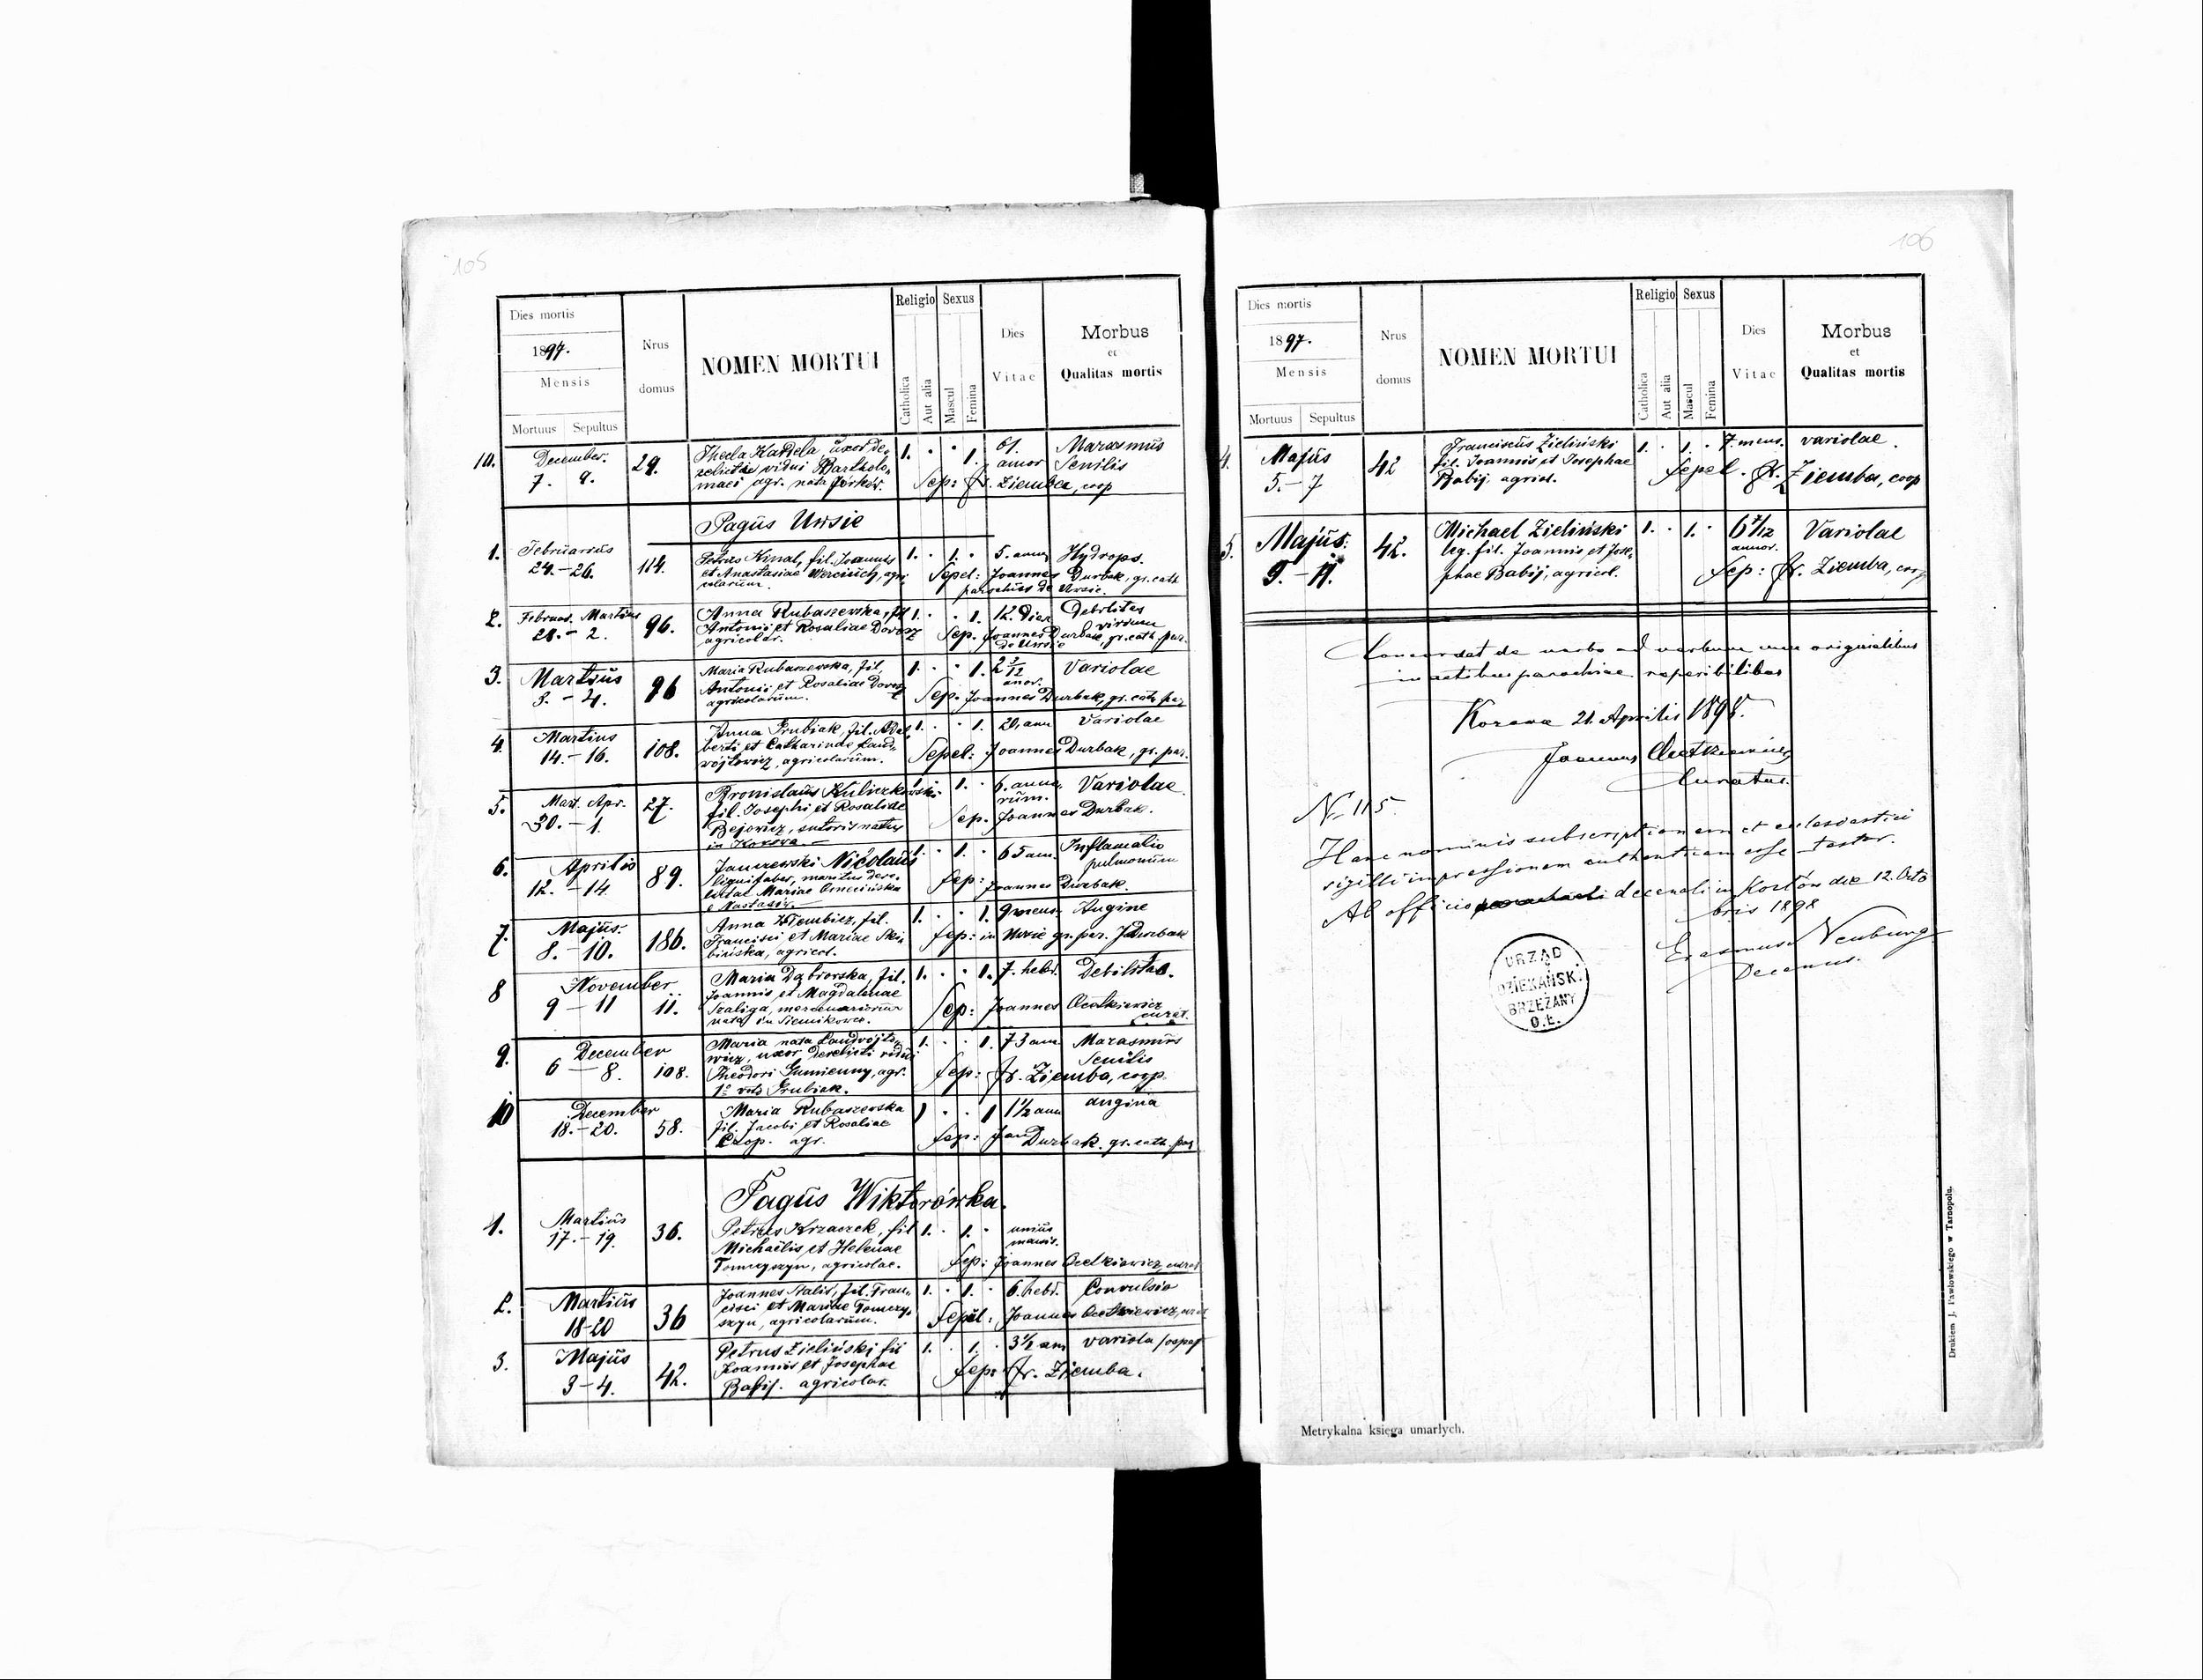 105
Dies mortis
1897.
Mensis
Mortuus Sepultus
Nrus
domus
NOMEN MORTUI
Religio Sexus
Catholica
Aut alia
Mascul
Femina
Dies
Vitae
Morbus
et
Qualitas mortis
10. December. 7. 9. 29. Thecla Kardela, uxor de-
relicta vidui Bartholo-
maei agr. nata
1. . . 1. 61. annor Marasmus Senilis
Sep: fr. Ziemba, coop
Pagus Ursie
1. Februarius 24.-26. 114. Petrus Kmal, fil. Joannis
et Anastasiae agri-
colarum.
1. . 1. . 5. annor Hydrops.
Sepel: Joannes Durbak, gr. cath
parochus de Ursie.
2. Februar. Martius 28.-2. 96. Anna Rubaszewska, fil
Antonii et Rosaliae Dowosz
agricolar.
1. . . 1. 12. Dies Debilitas virium
Sep. Joannes Durbak, gr. cath. par.
de Ursie
3. Martius 3.-4. 96 Maria Rubaszewska, fil,
Antonii et Rosaliae Dowosz
agricolarum.
1. . . 1. 2 3/12 anor. Variolae
Sep. Joannes Durbak, gr. cath par
4. Martius 14.-16. 108. Anna Grubiak, fil. Adal-
berti et Catharinae Land-
wójtowicz, agricolarum.
1. . . 1. 20, ann Variolae
Sepel: Joannes Durbak, gr. par.
5. Mart. Apr. 30.-1. 27. Bronislaus Kuliczkowski
fil. Josephi et Rosaliae
Bejowicz, sutoris natus
in Kozowa.
1. . 6. anno-
rum. Variolae
Sep. Joannes Durbak.
6. Aprilis 12.-14. 89. Janczewski Nicolaus
lignifaber, maritus dere-
lictae Mariae
e Nastasów.
1. . 1. . 65 ann. Inflamatio
pulmonum
Sep: Joannes Durbak.
7. Majus. 8.-10. 186. Anna fil.
Francisci et Mariae Ski-
bińska, agricol.
1. . . 1. 9 mens. Angine
Sep: in Ursie gr. par. J Durbak
8 November 9-11 11. Maria Dąbrowska, fil.
Joannis et Magdalenae
Szaliga, mercenariorum
nata in Siemikowce.
1. . . 1. 7. hebd. Debilitas.
Sep: Joannes Ocetkiewicz
curat.
9. December 6-8. 108. Maria nata Landwójto-
wicz, uxor derelicti vidui
Theodori Gumienny, agr.
1º voto Grubiak.
1. . . 1. 73 ann Marasmus
Senilis
Sep: fr. Ziemba, coop.
10 December 18.-20. 58. Maria Rubaszewska
fil. Jacobi et Rosaliae
Czop. agr.
1 . . 1 1 1/2 ann angina
Sep: Joan Durbak. gr. cath. par
Pagus Wiktorówka.
1. Martius 17.-19. 36. Petrus Krzaszek, fil
Michaëlis et Helenae
Tomczyszyn, agricolae.
1. . 1. . unius
mensis.
Sep: Joannes Ocetkiewicz curat
2. Martius 18-20 36 Joannes Stalis, fil. Fran-
cisci et Mariae Tomczy-
szyn, agricolarum.
1. . 1. . 6. hebd. Convulsio
Sepel: Joannes Ocetkiewicz, curat
3. Majus 3-4. 42. Petrus Zieliński fil
Joannis et Josephae
Babij. agricolar.
1. . 1. . 3 1/2 ann variola /ospa/
Sep: fr. Ziemba.
106
Dies mortis
1897.
Mensis
Mortuus Sepultus
Nrus
domus
NOMEN MORTUI
Religio Sexus
Catholica
Aut alia
Mascul
Femina
Dies
Vitae
Morbus
et
Qualitas mortis
4. Majus 5.-7 42 Franciscus Zieliński
fil. Joannis et Josephae
Babij, agricol.
1. . 1. . 7. mens. variolae.
Sepel. fr. Ziemba, coop
5. Majus. 9.-11. 42. Michael Zieliński
leg. fil. Joannis et Jose-
phae Babij, agricol.
1. . 1. . 6 7/12
annor. Variolae
Sep: fr. Ziemba, coop
Concordat de verbo ad verbum cum originalibus
in actibus parochiae reperibilibus
Kozowa 21. Aprilis 1898.
Joannes Ocetkiewicz
Curatus.
N 115.
Hanc nominis subscriptionem et ecclesiastici
sigilli impressionem authenticam esse testor.
Ab officio decanali in Kozłów die 12. Octo
bris 1898
Erasmus Neuburg
Decanus.
URZĄD
DZIEKAŃSK.
BRZEŻANY
O.Ł.
Metrykalna księga umarłych.
Drukiem J. Pawłowskiego w Tarnopolu.